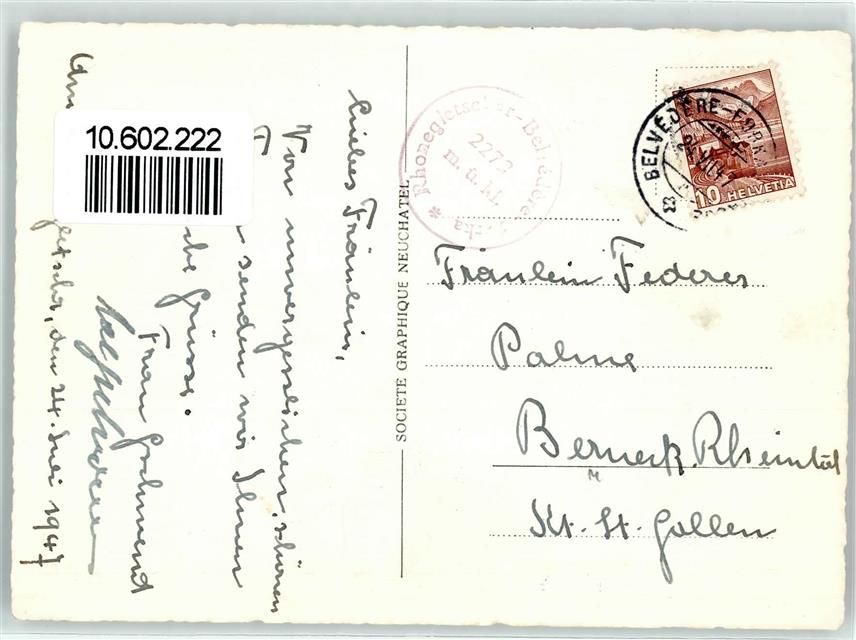 Liebes Fräulein,
Von unvergesslichen, schönen
senden wir Ihnen
che Grüsse.
Frau Gschwend
den 24. Juni 1947
10.602.222
SOCIETE GRAPHIQUE NEUCHATEL
Rhonegletscher-Belvédère Furka *
2272
m. ü. M.
BELVEDERE-FURKA
10 HELVETIA
Fräulein Federer
Palme
Berneck, Rheintal
Kt. St. Gallen